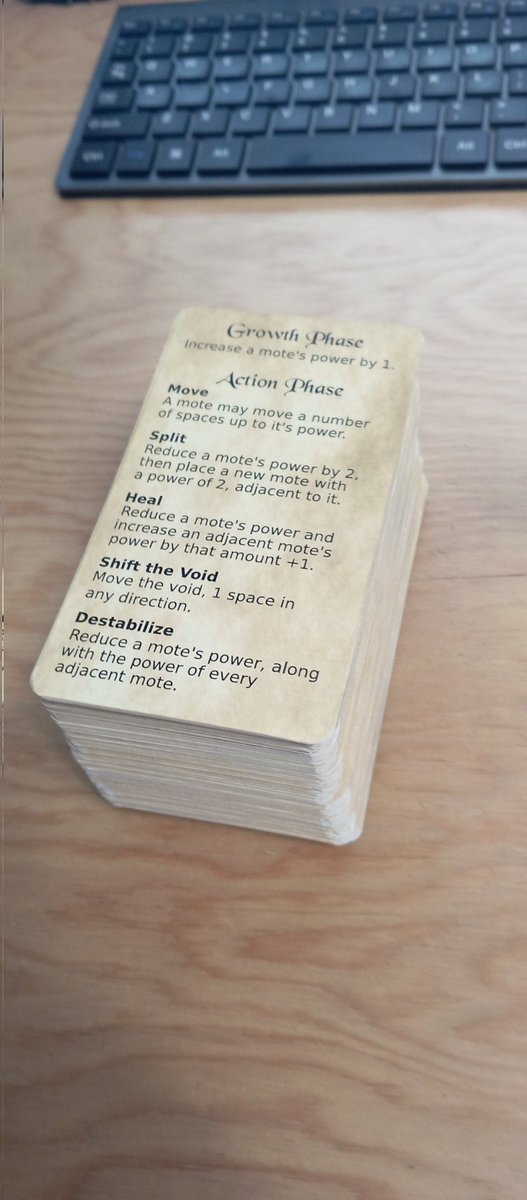 Growth Phase
Increase a mote's power by 1.
Action Phase
Move
A mote may move a number
of spaces up to it's power.
Split
Reduce a mote's power by 2,
then place a new mote with
a power of 2, adjacent to it.
Heal
Reduce a mote's power and
increase an adjacent mote's
power by that amount +1.
Shift the Void
Move the void, 1 space in
any direction.
Destabilize
Reduce a mote's power, along
with the power of every
adjacent mote.